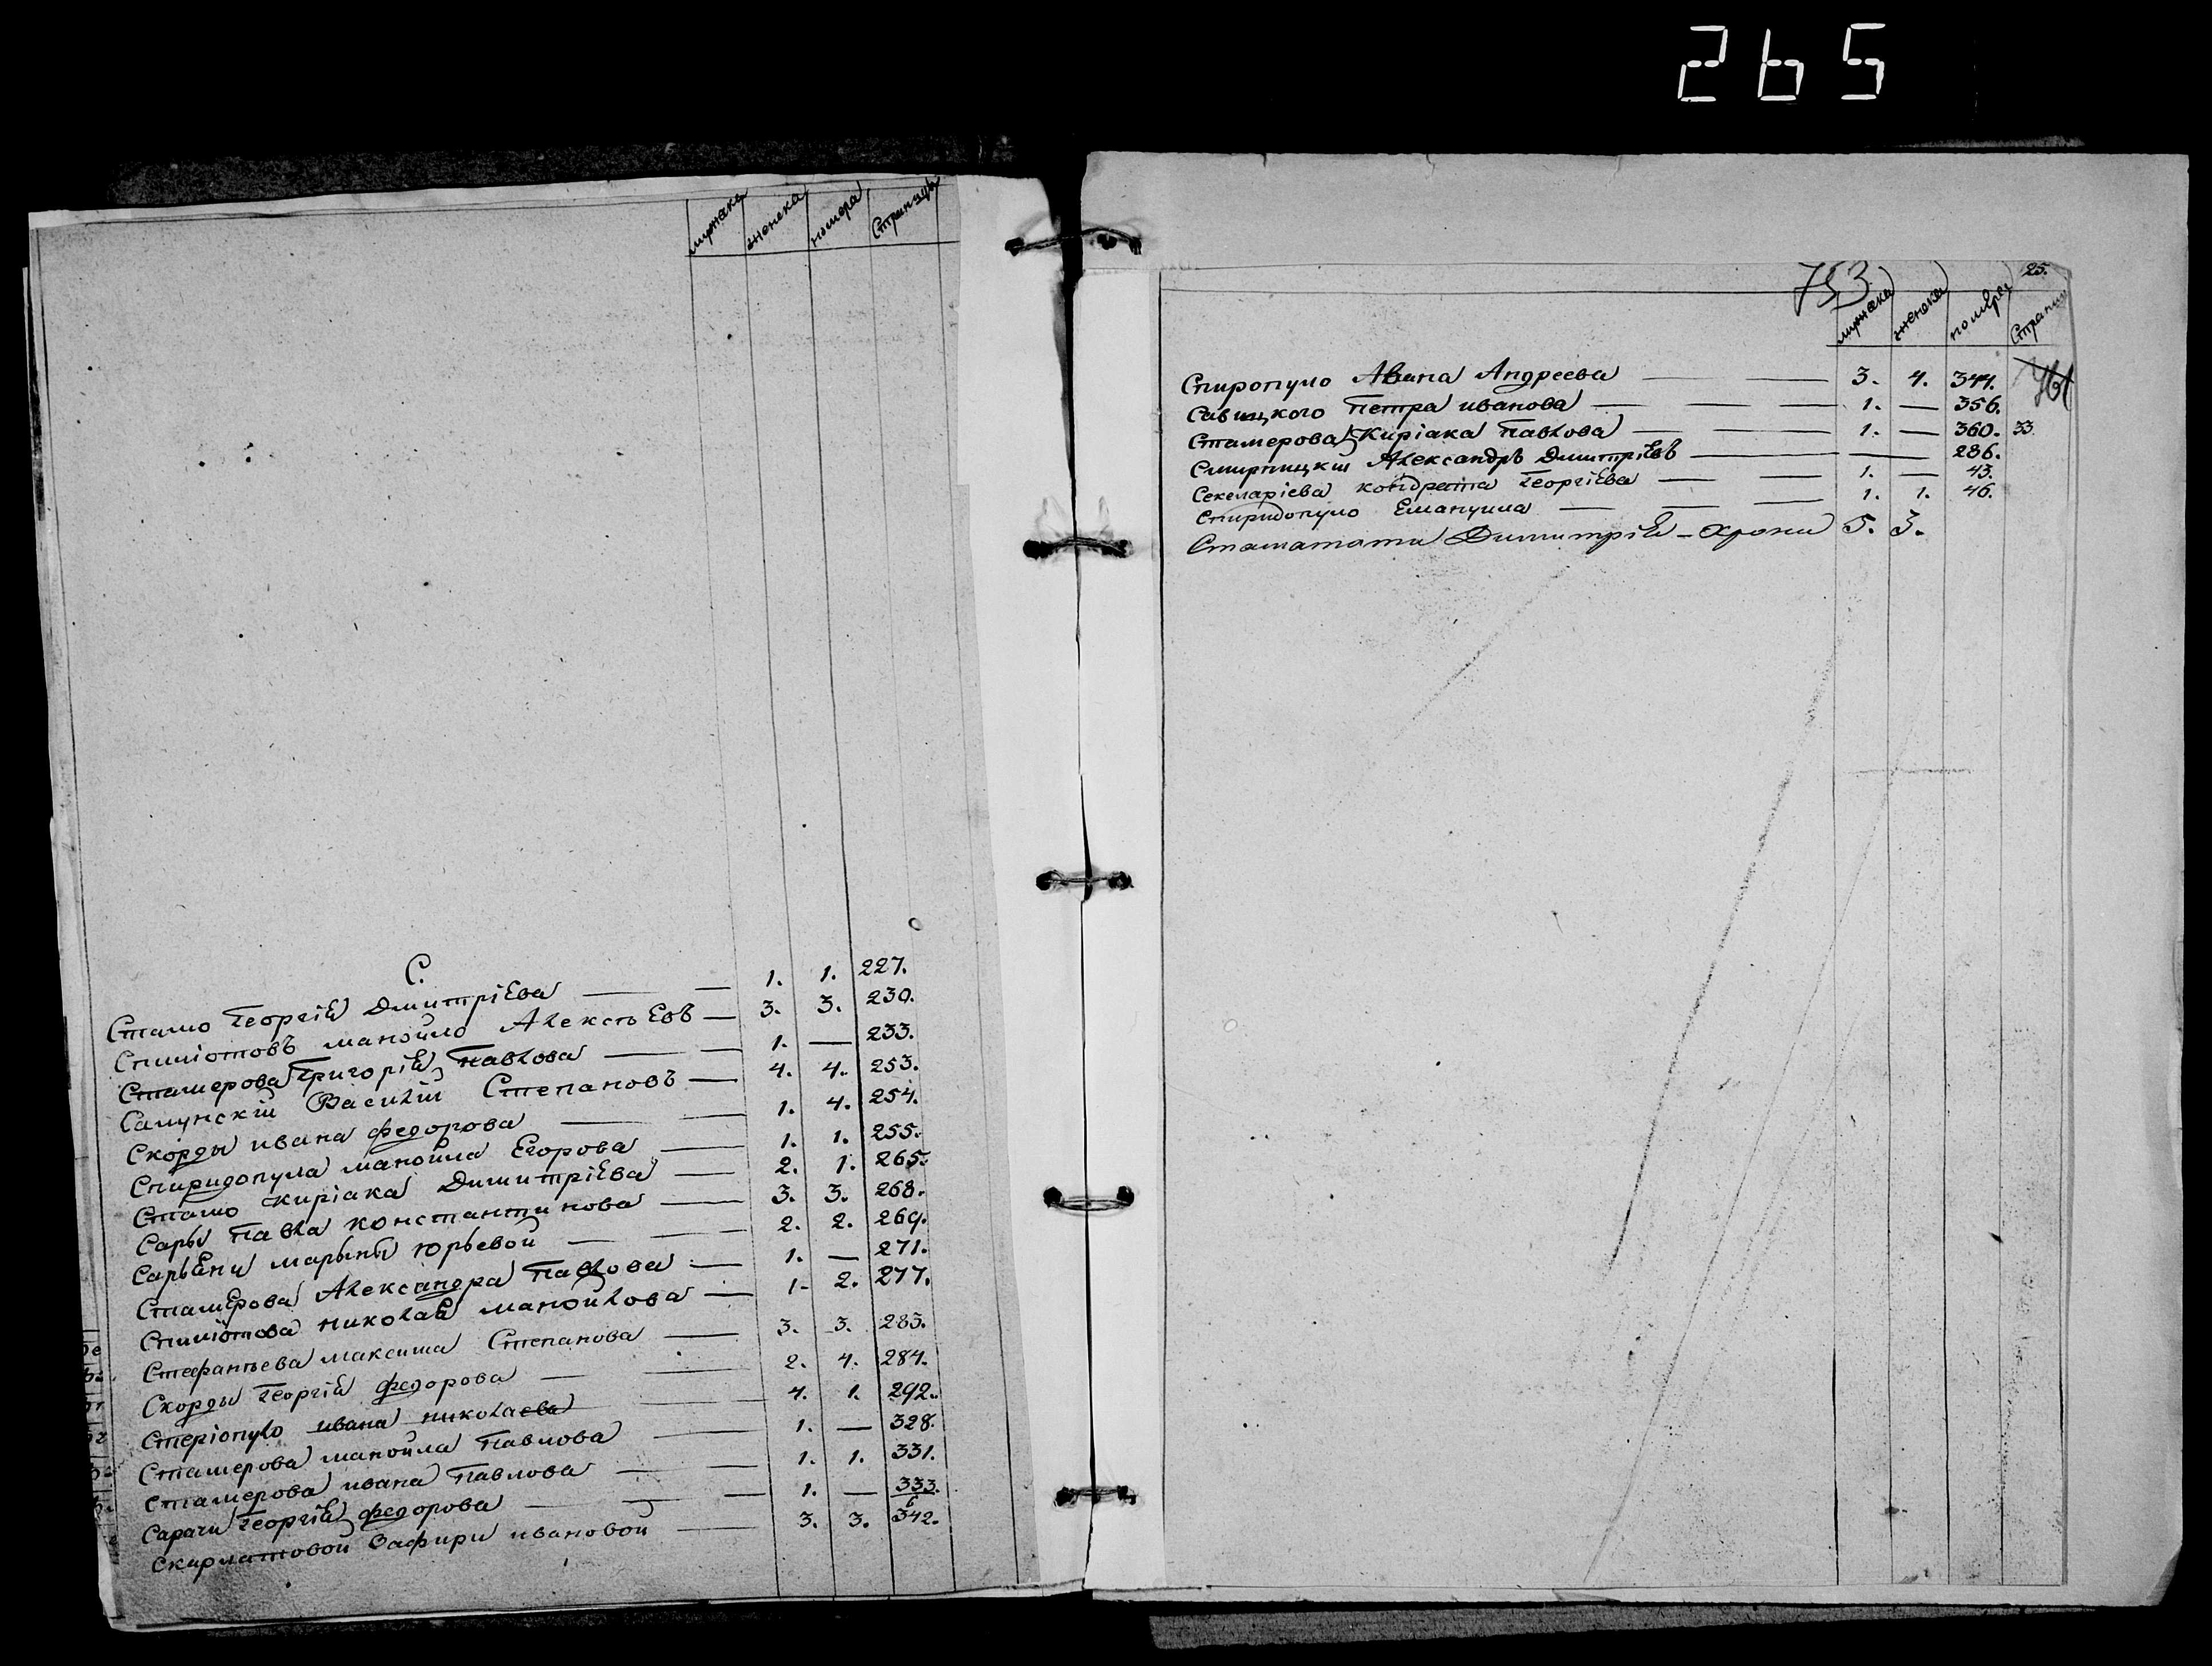 265
мужска женска номера Страницы
С.
Стамо Георгія Дмитріева — — 1. 1. 227.
Спиліотовъ манойло Алексѣевъ — 3. 3. 230.
Стамерова Григорія Павлова — — 1. — 233.
Самунскій Василій Степановъ — 4. 4. 253.
Скорды ивана федорова — — 1. 4. 254.
Спиридопула манойла Егорова — 1. 1. 255.
Стамо киріака Димитріева — 2. 1. 265.
Сары Павла константинова — 3. 3. 268.
марыны Юрьевой — — 2. 2. 269.
Стамерова Александра Павлова — 1. — 271.
Спиліотова николая манойлова — 1. 2. 277.
Стефанъева максима Степанова — 3. 3. 283.
Скорды Георгія федорова — — 2. 4. 284.
Стеріопуло ивана николаева — 4. 1. 292.
Стамерова манойла Павлова — 1. — 328.
Стамерова ивана Павлова — — 1. 1. 331.
Сарачи Георгія федорова — — 1. — 333.
Скирлатовой Зафири ивановой — 3. 3. 342.
25.
753
мужска женска номера Страниц
Спиропуло Андреева — — 3. 4. 344.
Савицкого Петра иванова — — — 1. — 356.
Стамерова Киріака Павлова — — 1. — 360. 33
Смирницкій Александръ Димитріевъ — — — 286.
Секеларіева кондрата Георгіева — — 1. — 43.
Спиридопуло Емануила — — — 1. 1. 46.
Стаматати Димитрія - Хрони 5. 3.